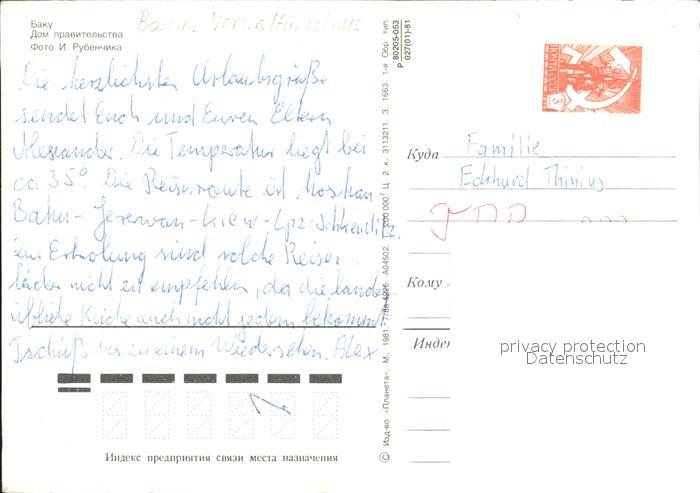 Баку
Дом правительства
Фото И. Рубенчика
Baku. Verwaltungshaus
Die herzlichsten Urlaubsgrüße
sendet Euch und Euren Eltern
Alexander. Die Temperatur liegt bei
ca 35°. Die Reiseroute ist Moskau-
Baku-Jerewan-Kiew-Lpz-Schkeuditz.
Zur Erholung sind solche Reisen
leider nicht zu empfehlen, da die landes-
übliche Küche auch nicht jedem bekommt.
Tschüß bis zu einem Wiedersehen. Alex
Индекс предприятия связи места назначения
© Изд-во «Планета», М. 1981. А04502. Ц. 2 к. 3113211. З. 1663. 1-я Обр. тип.
80205-053
Р 027(01)-81
Куда
Familie
Eckhard Thinius
Кому
Индек
privacy protection
Datenschutz